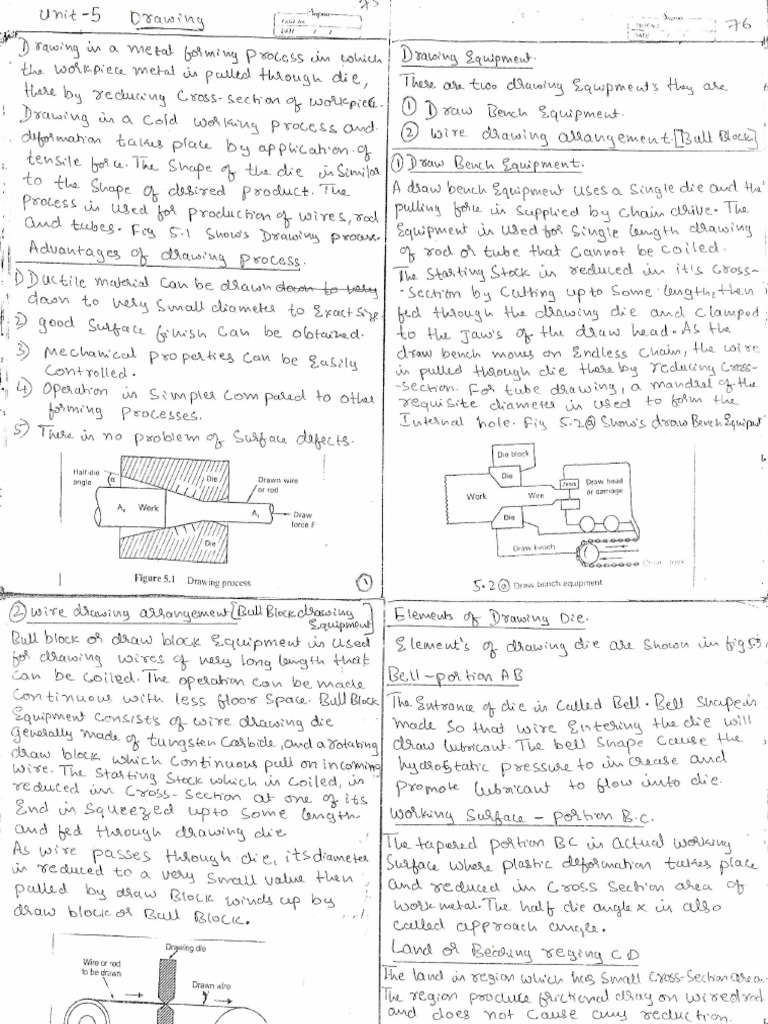 Unit-5 Drawing
Drawing is a metal forming process in which
the workpiece metal is pulled through die,
there by reducing Cross-section of workpiece.
Drawing is a Cold working process and
deformation takes place by application of
tensile force. The Shape of the die is Similar
to the Shape of desired product. The
process is used for production of wires, rod
and tubes. Fig 5.1 Shows Drawing process.
Advantages of drawing process.
1) Ductile material can be drawn down to very
down to very small diameter to Exact Size.
2) good Surface finish can be obtained.
3) Mechanical properties can be Easily
Controlled.
4) Operation is Simpler Compared to other
forming processes.
5) There is no problem of Surface defects.
Half-die
angle
α
Die
Drawn wire
or rod
A₀ Work
A₁
Draw
force F
Die
Figure 5.1 Drawing process
1
76
Drawing Equipment.
There are two drawing Equipment's they are
① Draw Bench Equipment.
② wire drawing arrangement.[Bull Block]
① Draw Bench Equipment.
A draw bench Equipment uses a Single die and the
pulling force is supplied by Chain drive. The
Equipment is Used for Single length drawing
of rod or tube that Cannot be coiled.
The Starting Stock is reduced in it's Cross-
-Section by Cutting upto Some length, then
fed through the drawing die and clamped
to the Jaw's of the draw head. As the
draw bench moves on Endless Chain, the wire
is pulled through die there by reducing Cross-
-section. For tube drawing, a mandrel of the
requisite diameter is used to form the
Internal hole. Fig 5.2ⓐ Show's draw Bench Equipmt
Die block
Die
Work
Wire
Jaws
Draw head
or carriage
Die
Draw bench
Chain drive
5.2ⓐ Draw bench equipment
② wire drawing arrangement [Bull Block drawing
Equipment]
Bull block or draw block Equipment is Used
for drawing wires of very long length that
can be coiled. The operation can be made
Continuous with less floor Space. Bull Block
Equipment consists of wire drawing die
generally made of tungsten Carbide, and a rotating
draw block which Continuous pull on incoming
wire. The Starting Stock which is coiled, is
reduced in Cross-Section at one of its
End is Squeezed upto Some length
and fed through drawing die
As wire passes through die, its diameter
is reduced to a very small value then
pulled by draw Block winds up by
draw block or Bull Block.
Drawing die
Wire or rod
to be drawn
Drawn wire
Elements of Drawing Die.
Element's of drawing die are shown in fig 5.3
Bell-portion AB
The Entrance of die is Called Bell. Bell Shape is
made So that wire Entering the die will
draw lubricant. The bell Shape Cause the
hydrostatic pressure to increase and
promote lubricant to flow into die.
Working Surface - portion B.C.
The tapered portion BC is actual working
Surface where plastic deformation takes place
and reduced in Cross Section area of
work metal. The half die angle x is also
called approach angle.
Land or Bearing reging CD
The land is region which has Small Cross-Section area.
The region produce frictional drag on wire/rod
and does not Cause any reduction.